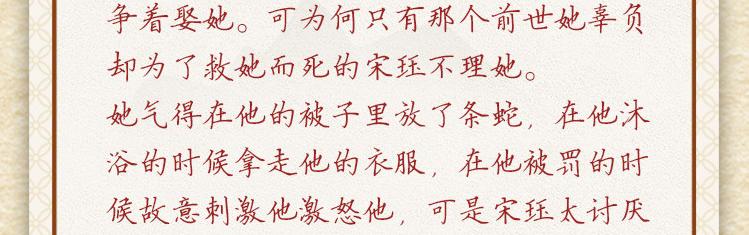 争着娶她。可为何只有那个前世她辜负
却为了救她而死的宋珏不理她。
她气得在他的被子里放了条蛇，在他沐
浴的时候拿走他的衣服，在他被罚的时
候故意刺激他激怒他，可是宋珏太讨厌